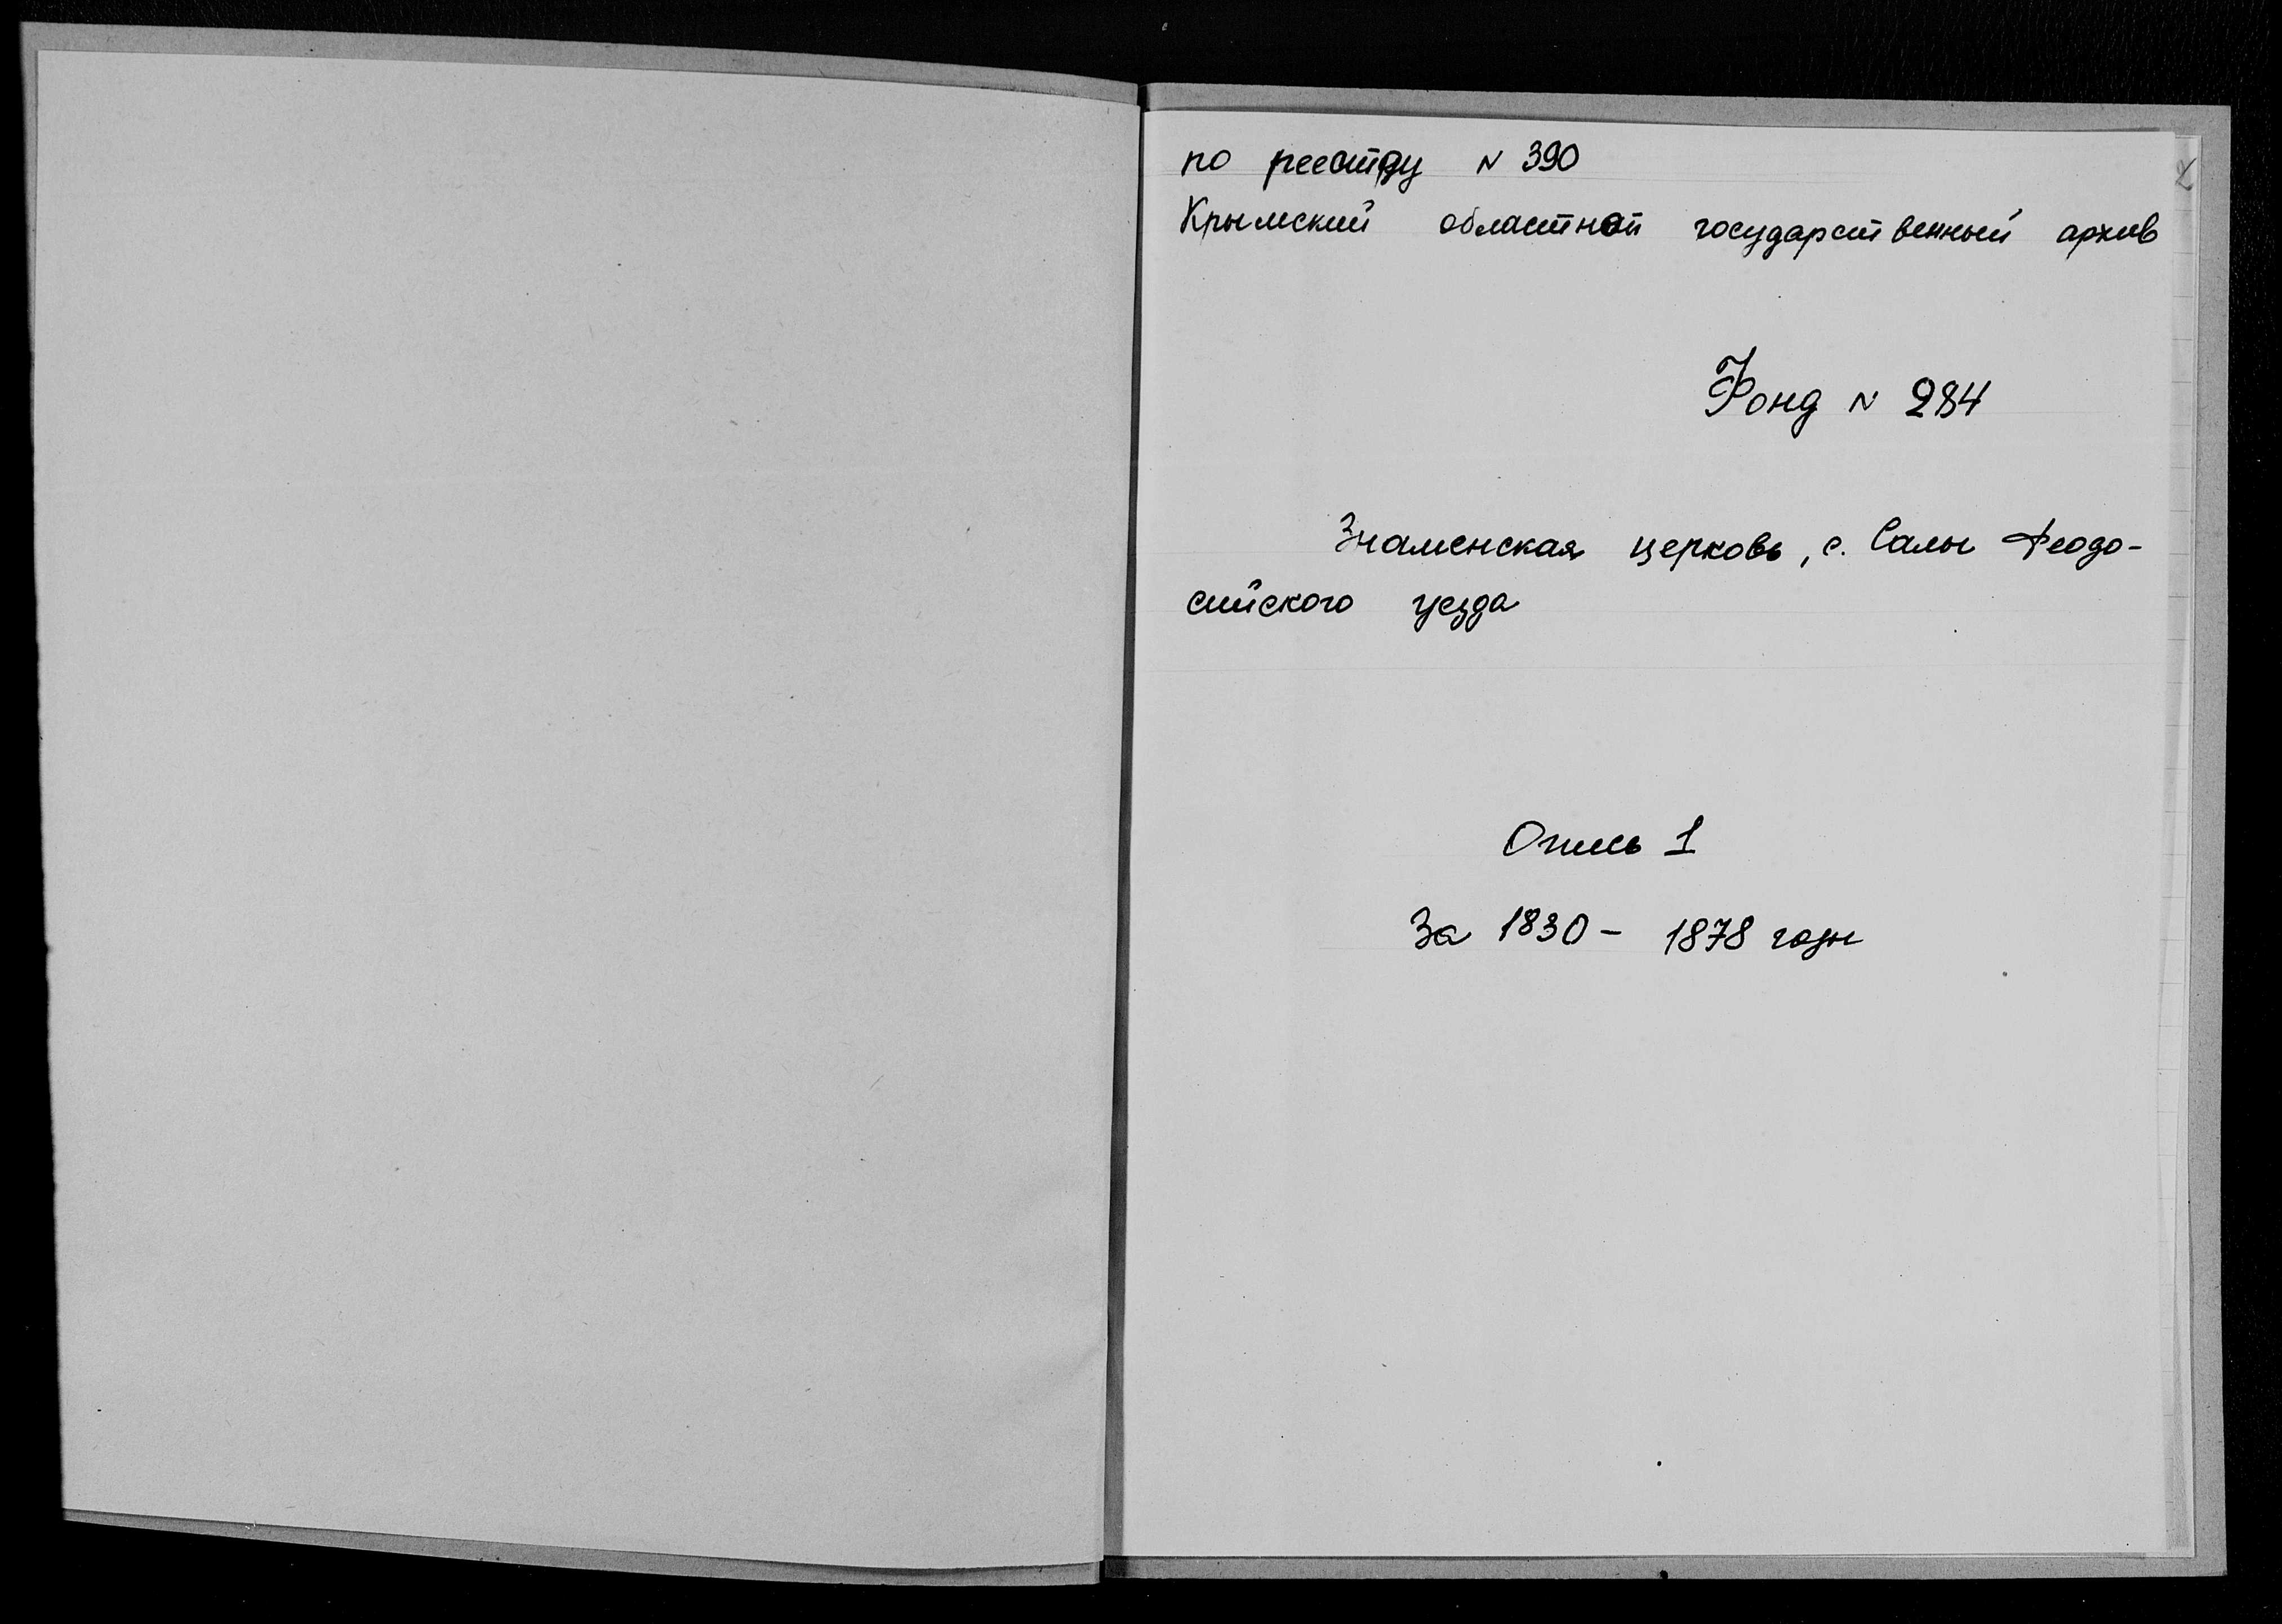 по реестру N 390
Крымский областной государственный архив
Фонд N 284
Знаменская церковь, с. Салы Феодо-
сийского уезда
Опись 1
За 1830 - 1878 годы